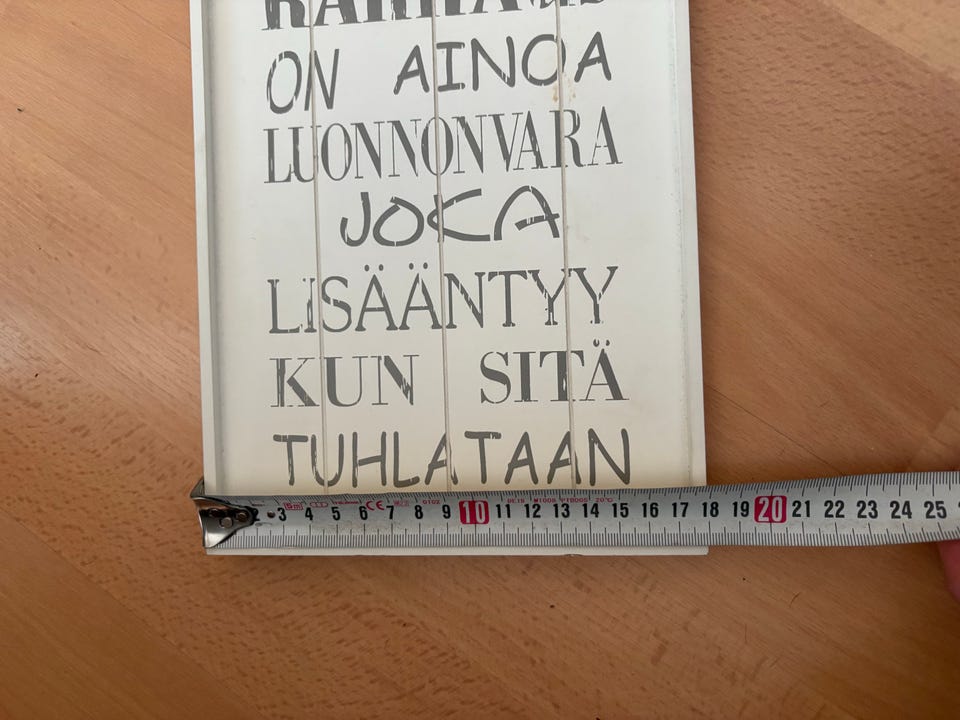 RAKKAUS
ON AINOA
LUONNONVARA
JOKA
LISÄÄNTYY
KUN SITÄ
TUHLATAAN
5m CE 20°C
2 3 4 5 6 7 8 9 10 11 12 13 14 15 16 17 18 19 20 21 22 23 24 25